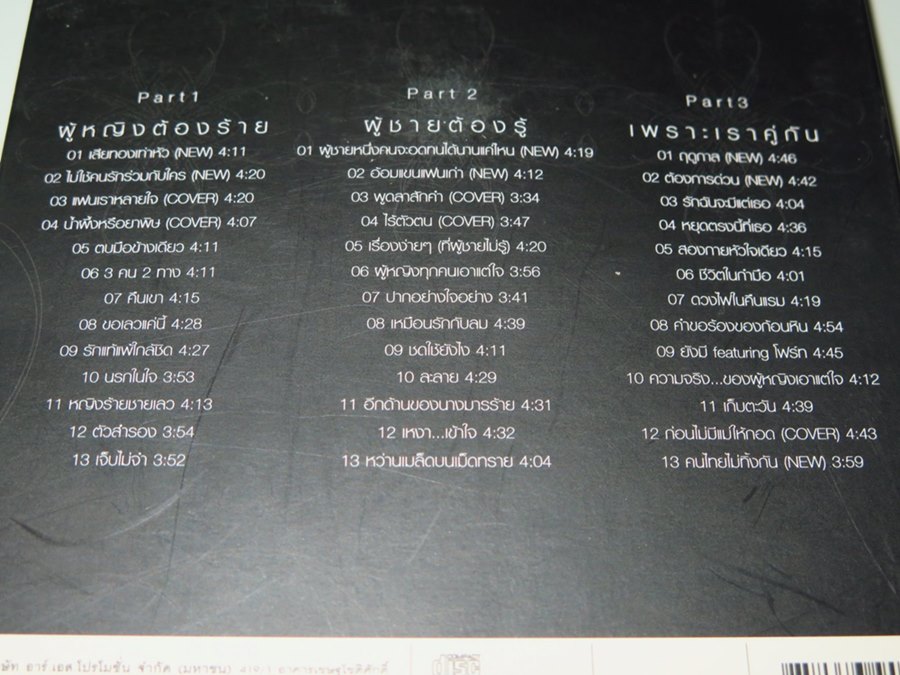 Part 1
ผู้หญิงต้องร้าย
01 เสียทองเท่าหัว (NEW) 4:11
02 ไม่ใช่คนรักร่วมกับใคร (NEW) 4:20
03 แฟนเราหลายใจ (COVER) 4:20
04 น้ำผึ้งหรือยาพิษ (COVER) 4:07
05 ตบมือข้างเดียว 4:11
06 3 คน 2 ทาง 4:11
07 คืนเขา 4:15
08 ขอเลวแค่นี้ 4:28
09 รักแท้แพ้ใกล้ชิด 4:27
10 นรกในใจ 3:53
11 หญิงร้ายชายเลว 4:13
12 ตัวสำรอง 3:54
13 เจ็บไม่จำ 3:52
Part 2
ผู้ชายต้องรู้
01 ผู้ชายหนึ่งคนจะอดทนได้นานแค่ไหน (NEW) 4:19
02 อ้อมแขนแฟนเก่า (NEW) 4:12
03 พูดลาสักคำ (COVER) 3:34
04 ไร้ตัวตน (COVER) 3:47
05 เรื่องง่ายๆ (ที่ผู้ชายไม่รู้) 4:20
06 ผู้หญิงทุกคนเอาแต่ใจ 3:56
07 ปากอย่างใจอย่าง 3:41
08 เหมือนรักกับลม 4:39
09 ชดใช้ยังไง 4:11
10 ละลาย 4:29
11 อีกด้านของนางมารร้าย 4:31
12 เหงา...เข้าใจ 4:32
13 หว่านเมล็ดบนเม็ดทราย 4:04
Part3
เพราะเราคู่กัน
01 ฤดูกาล (NEW) 4:46
02 ต้องการด่วน (NEW) 4:42
03 รักฉันจะมีแต่เธอ 4:04
04 หยุดตรงนี้ที่เธอ 4:36
05 สองกายหัวใจเดียว 4:15
06 ชีวิตในกำมือ 4:01
07 ดวงไฟในคืนแรม 4:19
08 คำขอร้องของก้อนหิน 4:54
09 ยังมี featuring โฟร์ท 4:45
10 ความจริง...ของผู้หญิงเอาแต่ใจ 4:12
11 เก็บตะวัน 4:39
12 ก่อนไม่มีแม่ให้กอด (COVER) 4:43
13 คนไทยไม่ทิ้งกัน (NEW) 3:59
ษัท อาร์.เอส.โปรโมชั่น จำกัด (มหาชน) 419/1 อาคารเชษฐโชติศักดิ์
disc